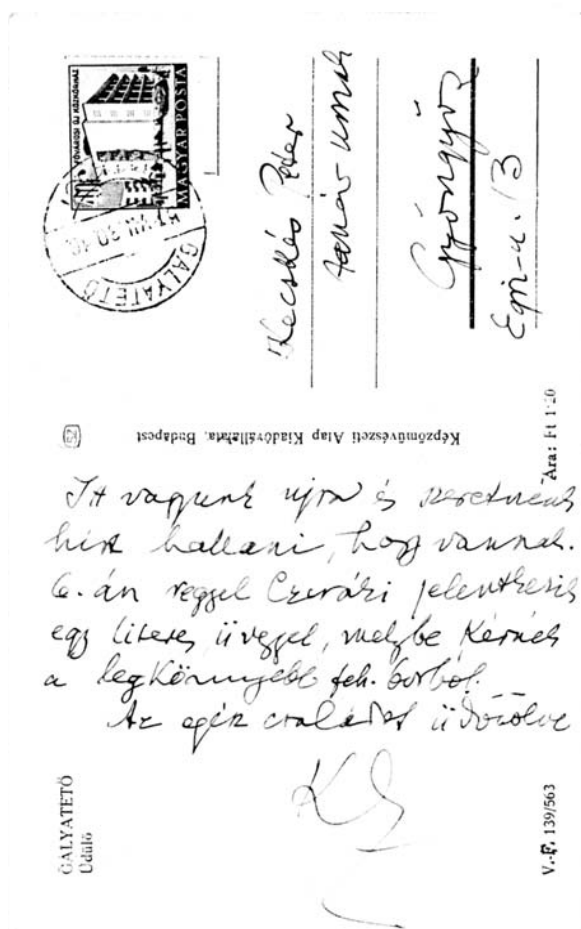 MAGYAR POSTA
GALYATETŐ
Kecskés Péter
tanár úrnak
Gyöngyös
Egri-u. 13
Képzőművészeti Alap Kiadóvállalata, Budapest
Ára: Ft 1·20
Itt vagyunk újra és szeretnénk
hírt hallani, hogy vannak.
6.-án reggel jelentkezik
egy literes üveggel, melybe kérnék
a legkönnyebb feh. borból.
Az egész családot üdvözölve
GALYATETŐ
Üdülő
V.-F. 139/563